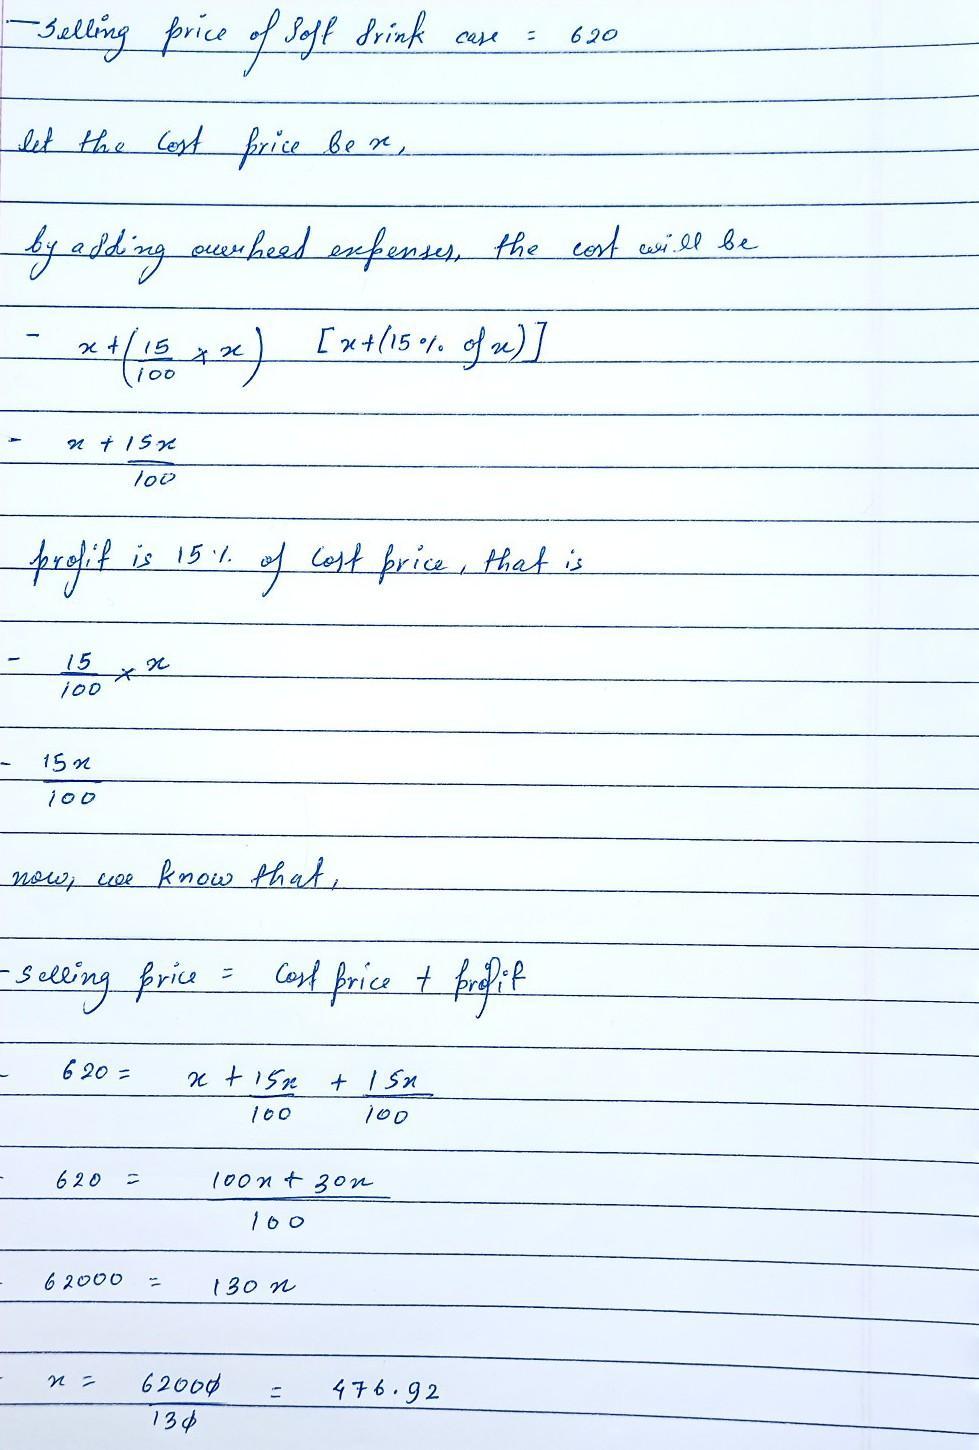 - Selling price of Soft drink case = 620
let the Cost price be x,
by adding overhead expenses, the cost will be
- x + (15/100 × x) [x+(15% of x)]
- x + 15x/100
profit is 15% of Cost price, that is
- 15/100 × x
- 15x/100
now, we know that,
- Selling price = Cost price + profit
- 620 = x + 15x/100 + 15x/100
- 620 = 100x + 30x/100
- 62000 = 130x
- x = 62000/130 = 476.92